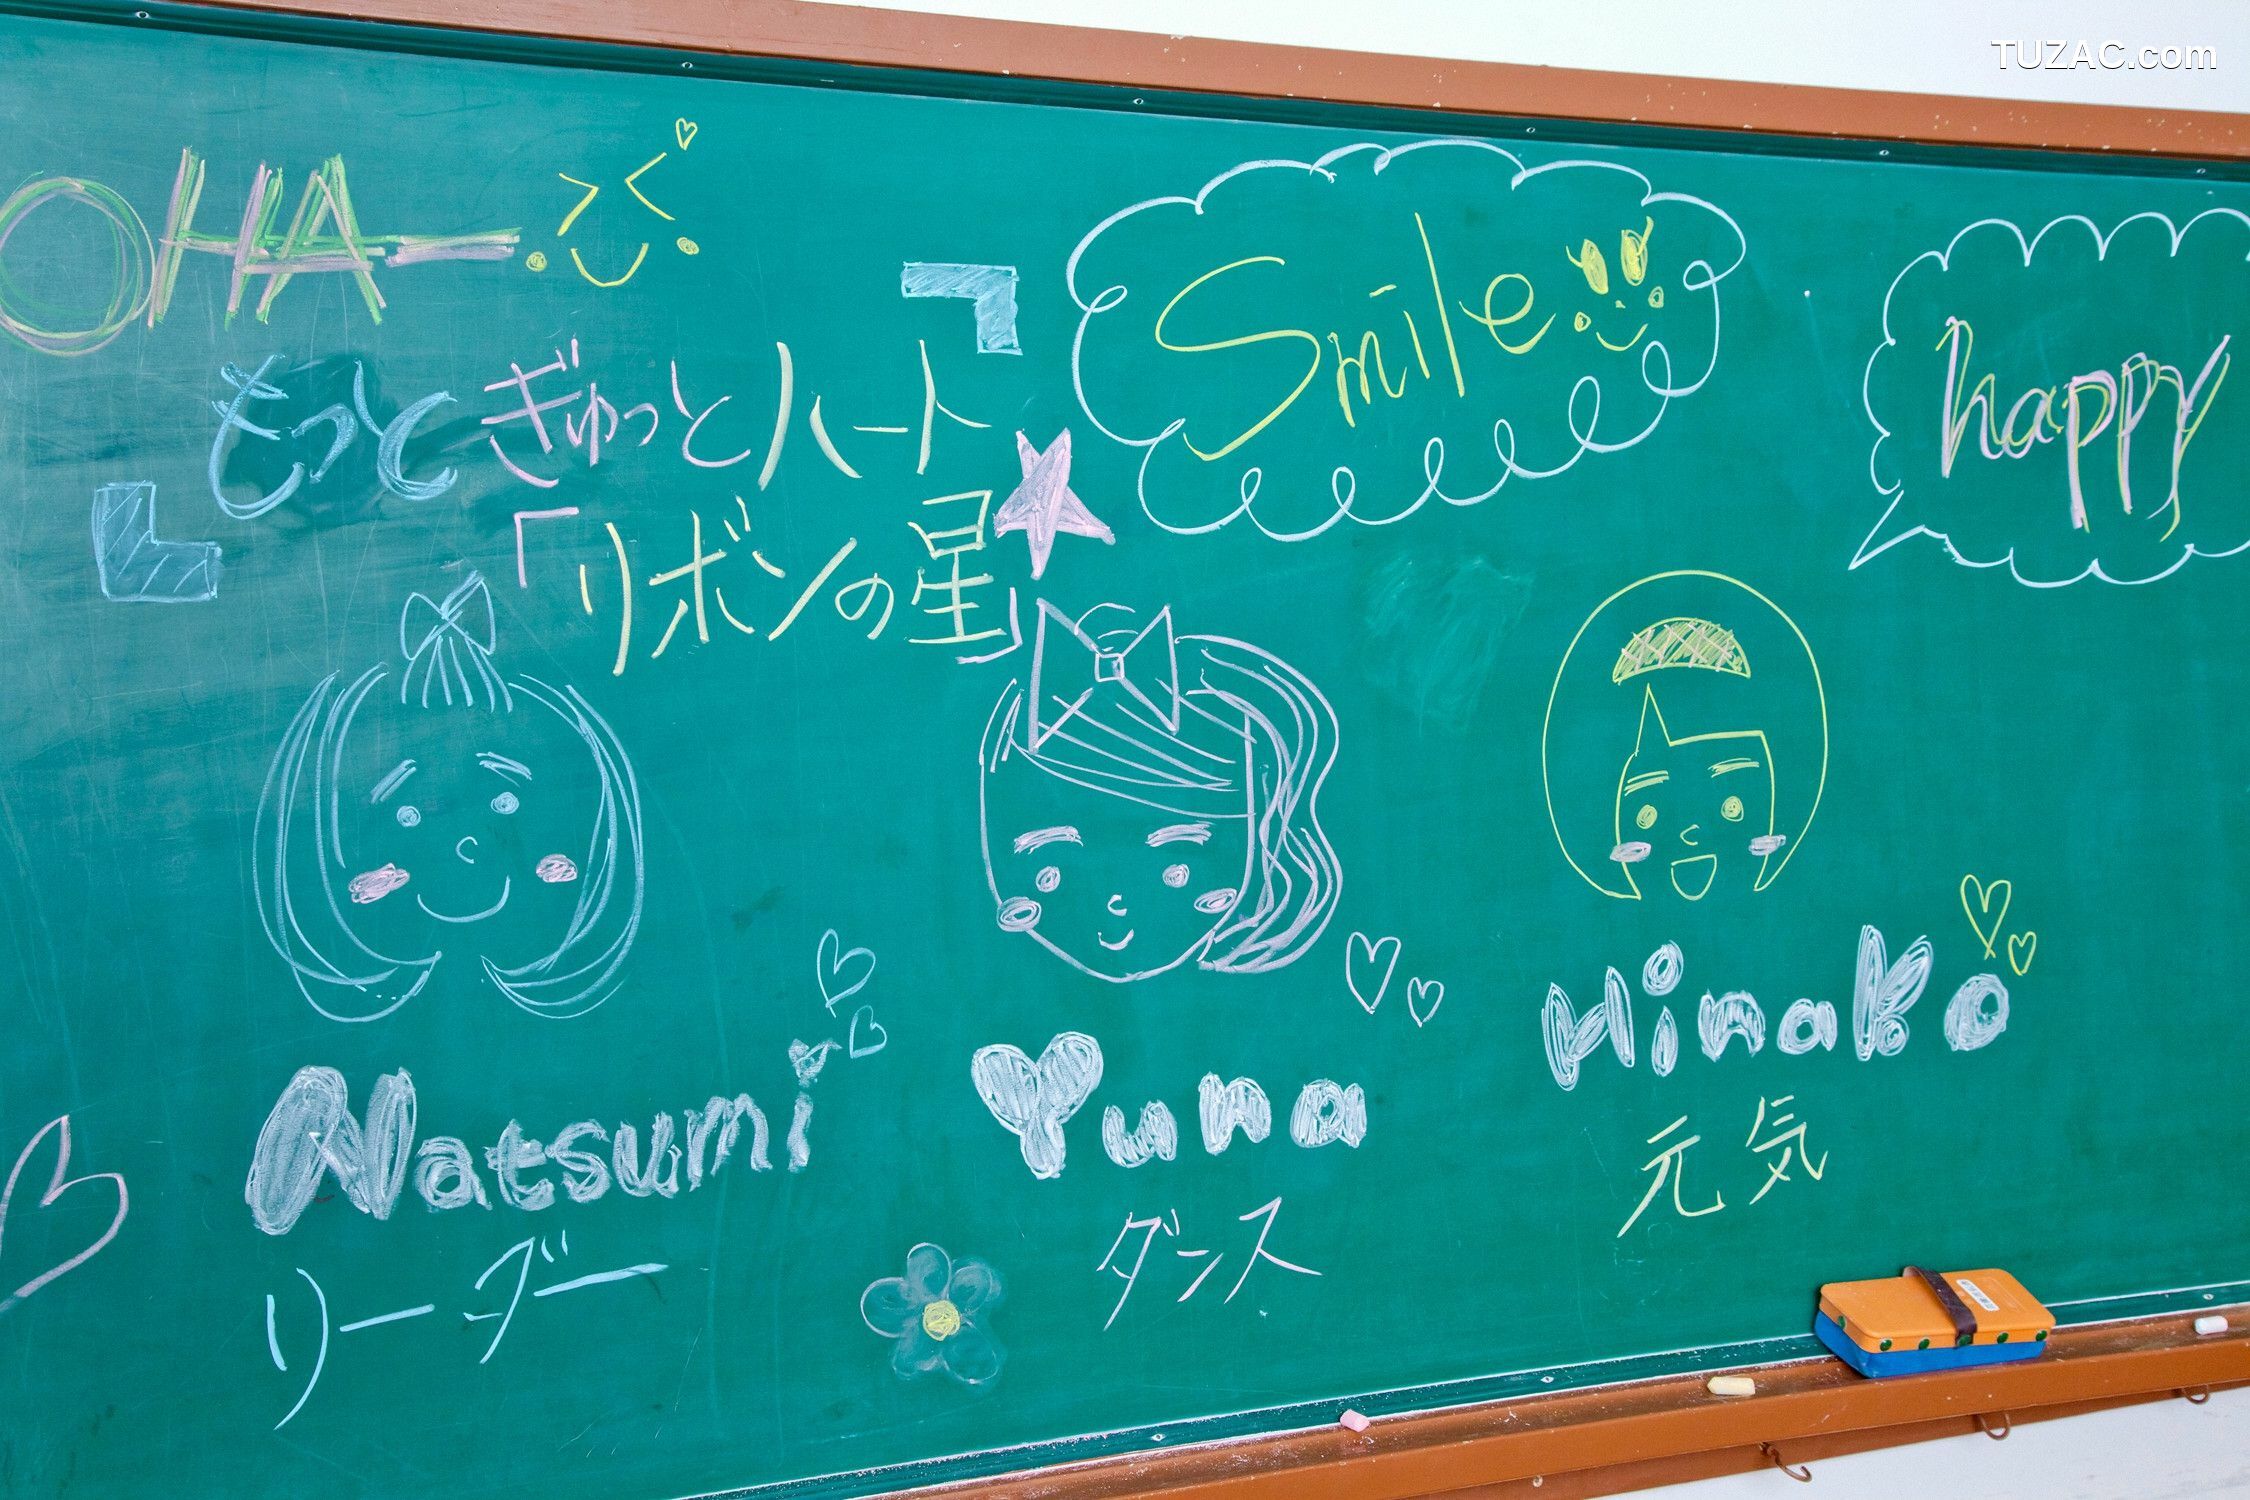 TUZAC.com
OHAー
Smile
happy
もっとぎゅっとハート
「リボンの星」
Natsumi
リーダー
Yuna
ダンス
Hinako
元気